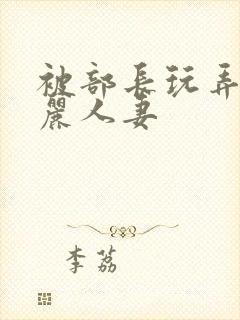 被部长玩弄
麗人妻
李荔